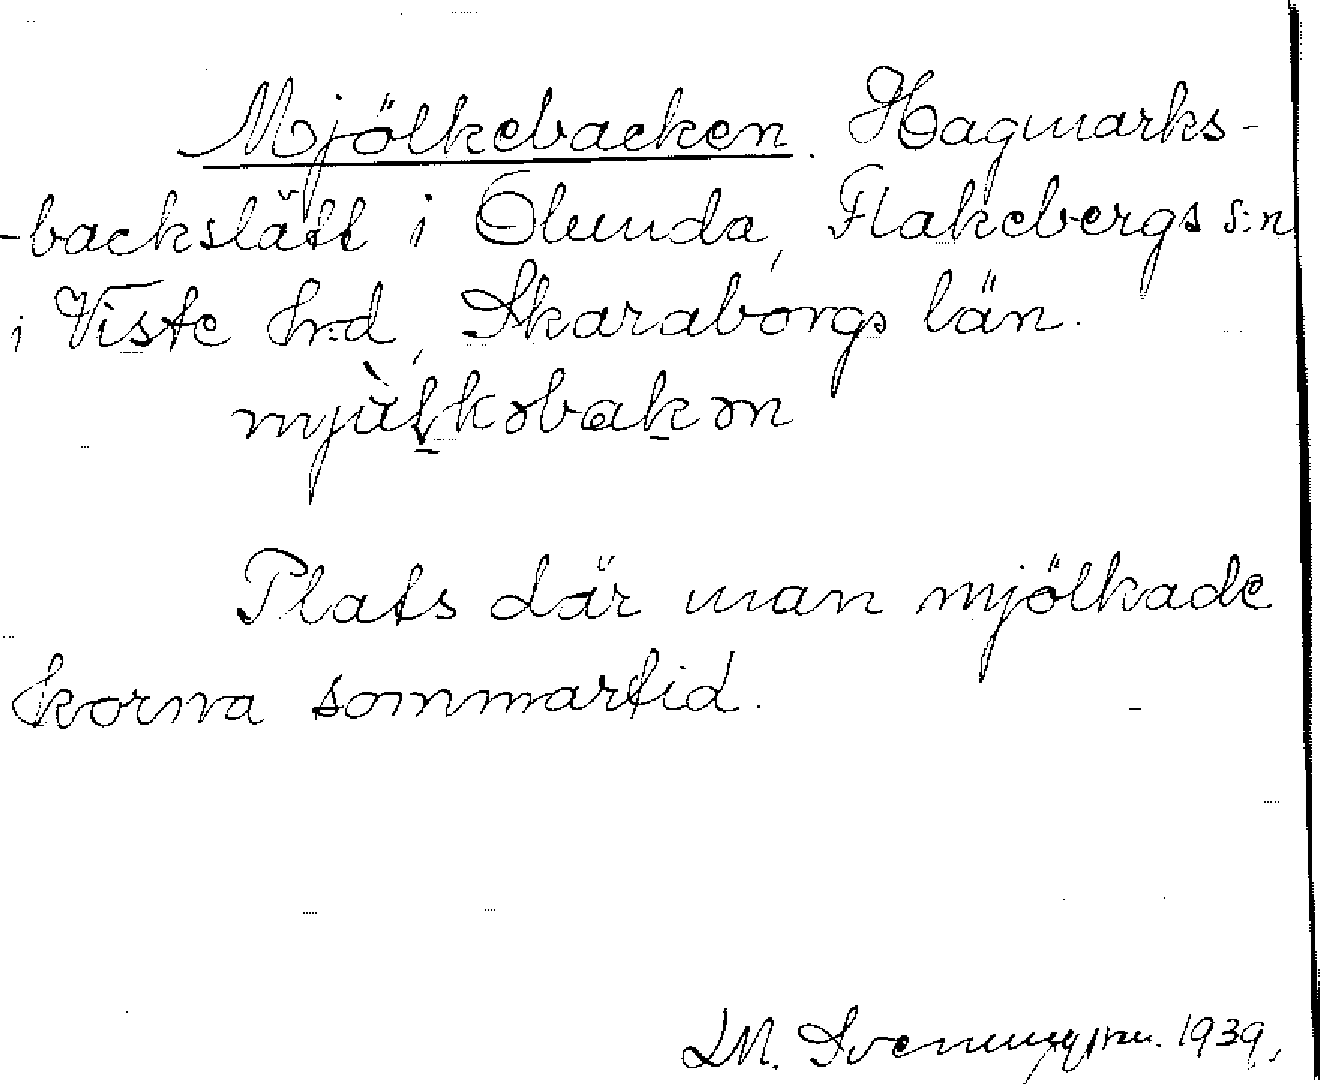 Mjölkebacken. Hagmarks-
-backslätt i Olunda, Flakebergs s:n
i Viste hrd, Skaraborgs län.
mjùlkəbakən
Plats där man mjölkade
korna sommartid.
1939.